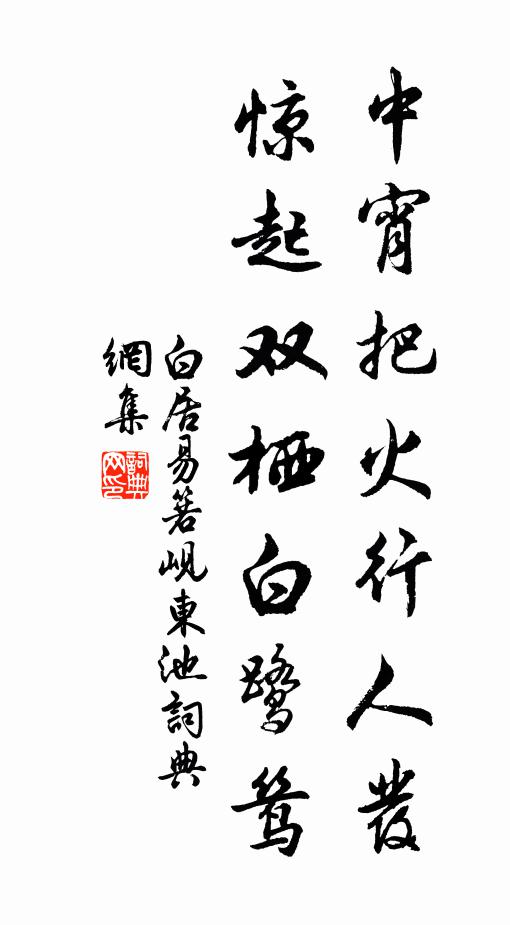 中宵把火行人發
惊起双栖白鷺鸶
白居易箬岘東池詞典
網集
詞典
网印